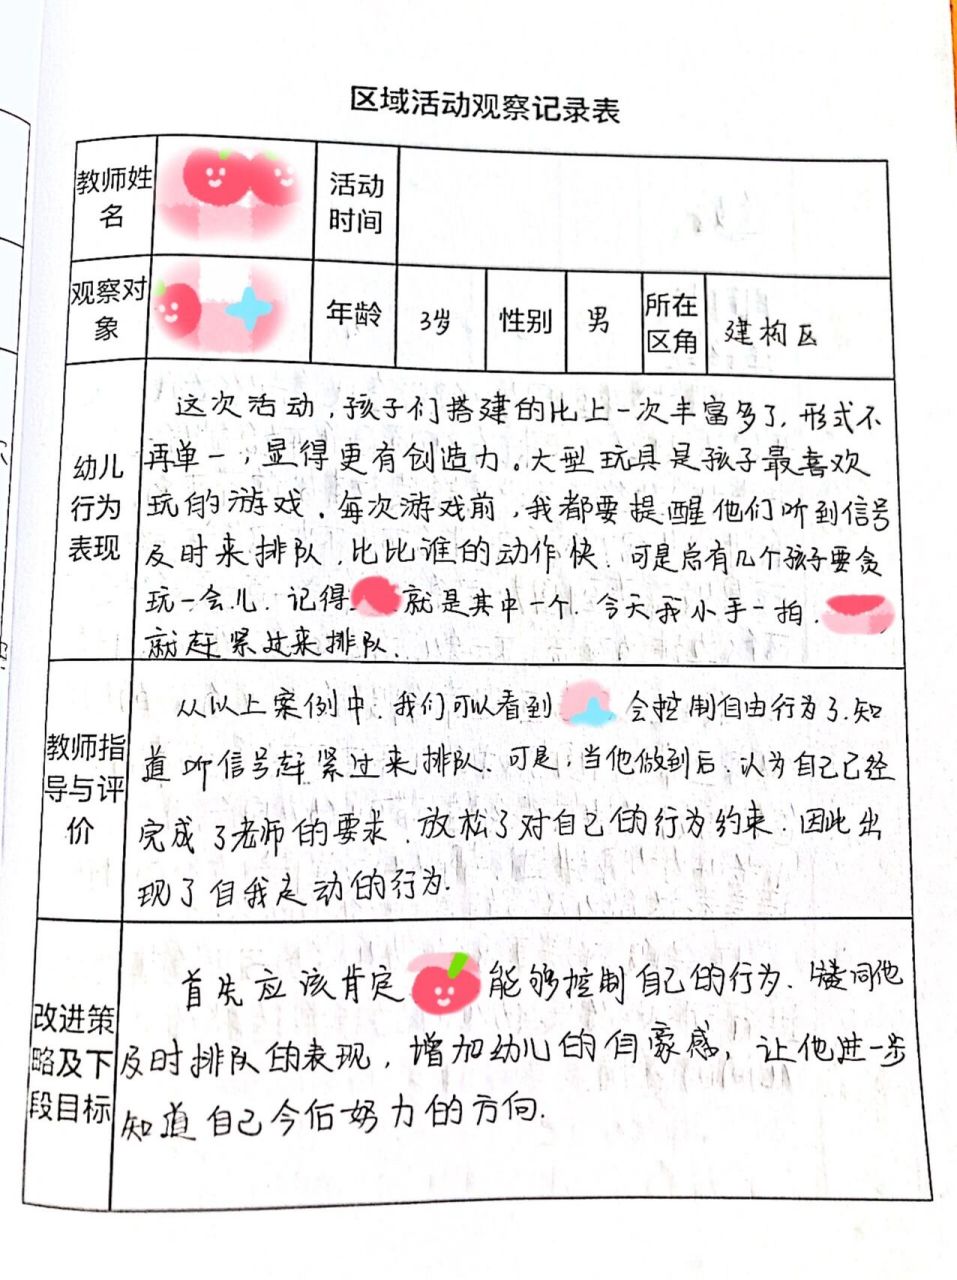 区域活动观察记录表
教师姓名
活动时间
观察对象
年龄
3岁
性别
男
所在区角
建构区
幼儿行为表现
这次活动，孩子们搭建的比上一次丰富多了，形式不
再单一，显得更有创造力。大型玩具是孩子最喜欢
玩的游戏。每次游戏前，我都要提醒他们听到信号
及时来排队，比比谁的动作快．可是总有几个孩子要贪
玩一会儿．记得 就是其中一个．今天我小手一拍，
就赶紧过来排队．
教师指导与评价
从以上案例中．我们可以看到 会控制自由行为了．知
道听信号赶紧过来排队．可是，当他做到后．认为自己已经
完成了老师的要求．放松了对自己的行为约束．因此出
现了自我走动的行为．
改进策略及下段目标
首先应该肯定 能够控制自己的行为． 他
及时排队的表现，增加幼儿的自豪感，让他进一步
知道自己今后努力的方向．